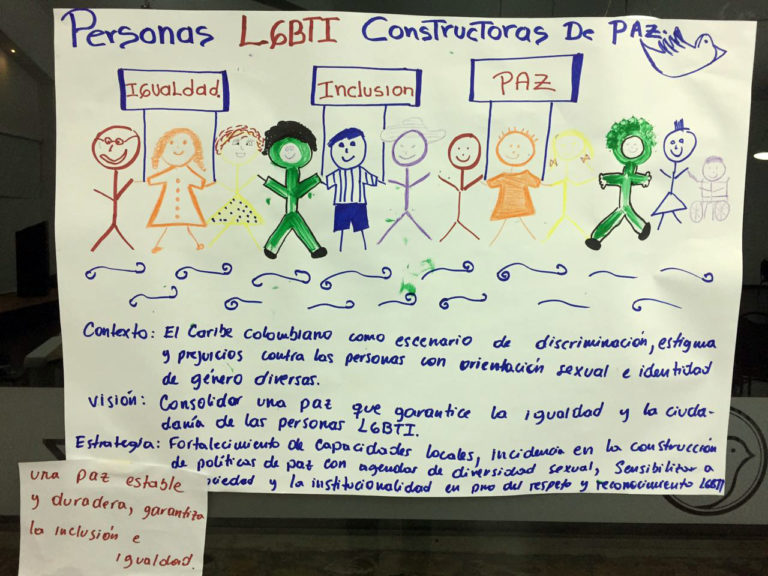 Personas LGBTI Constructoras De PAZ.
IGUALdad
Inclusion
PAZ
Contexto: El Caribe colombiano como escenario de discriminación, estigma
y prejuicios contra las personas con orientación sexual e identidad
de género diversas.
Visión: Consolidar una paz que garantice la igualdad y la ciuda-
danía de las personas LGBTI.
Estrategia: Fortalecimiento de capacidades locales, incidencia en la construcción
de políticas de paz con agendas de diversidad sexual, Sensibilizar a
y la institucionalidad en pro del respeto y reconocimiento LGBTI
una paz estable
y duradera, garantiza
la inclusión e
igualdad.